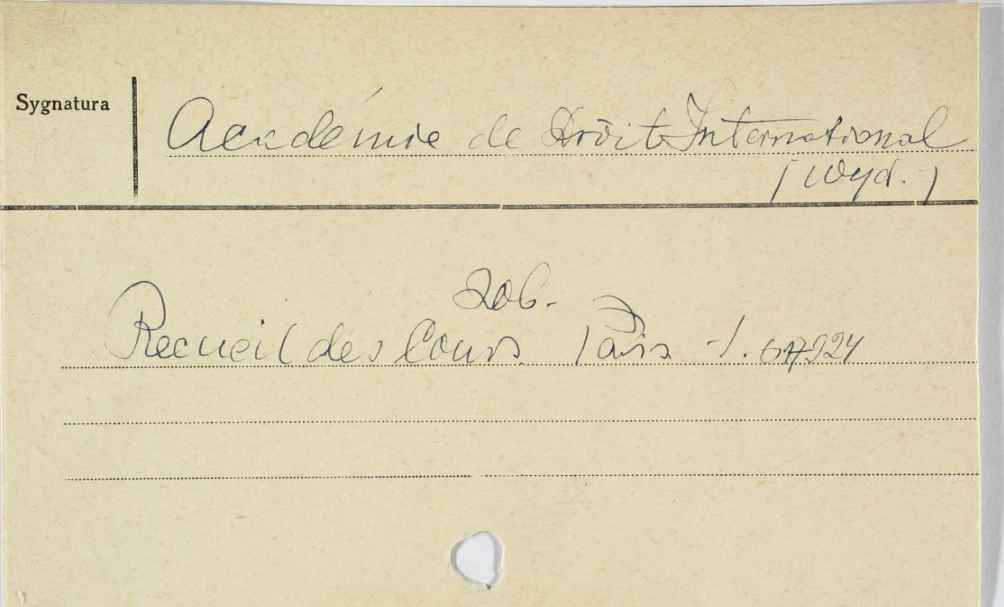 Sygnatura
Académie de Droit International
(Wyd.)
Zob.
Recueil des Cours. Paris